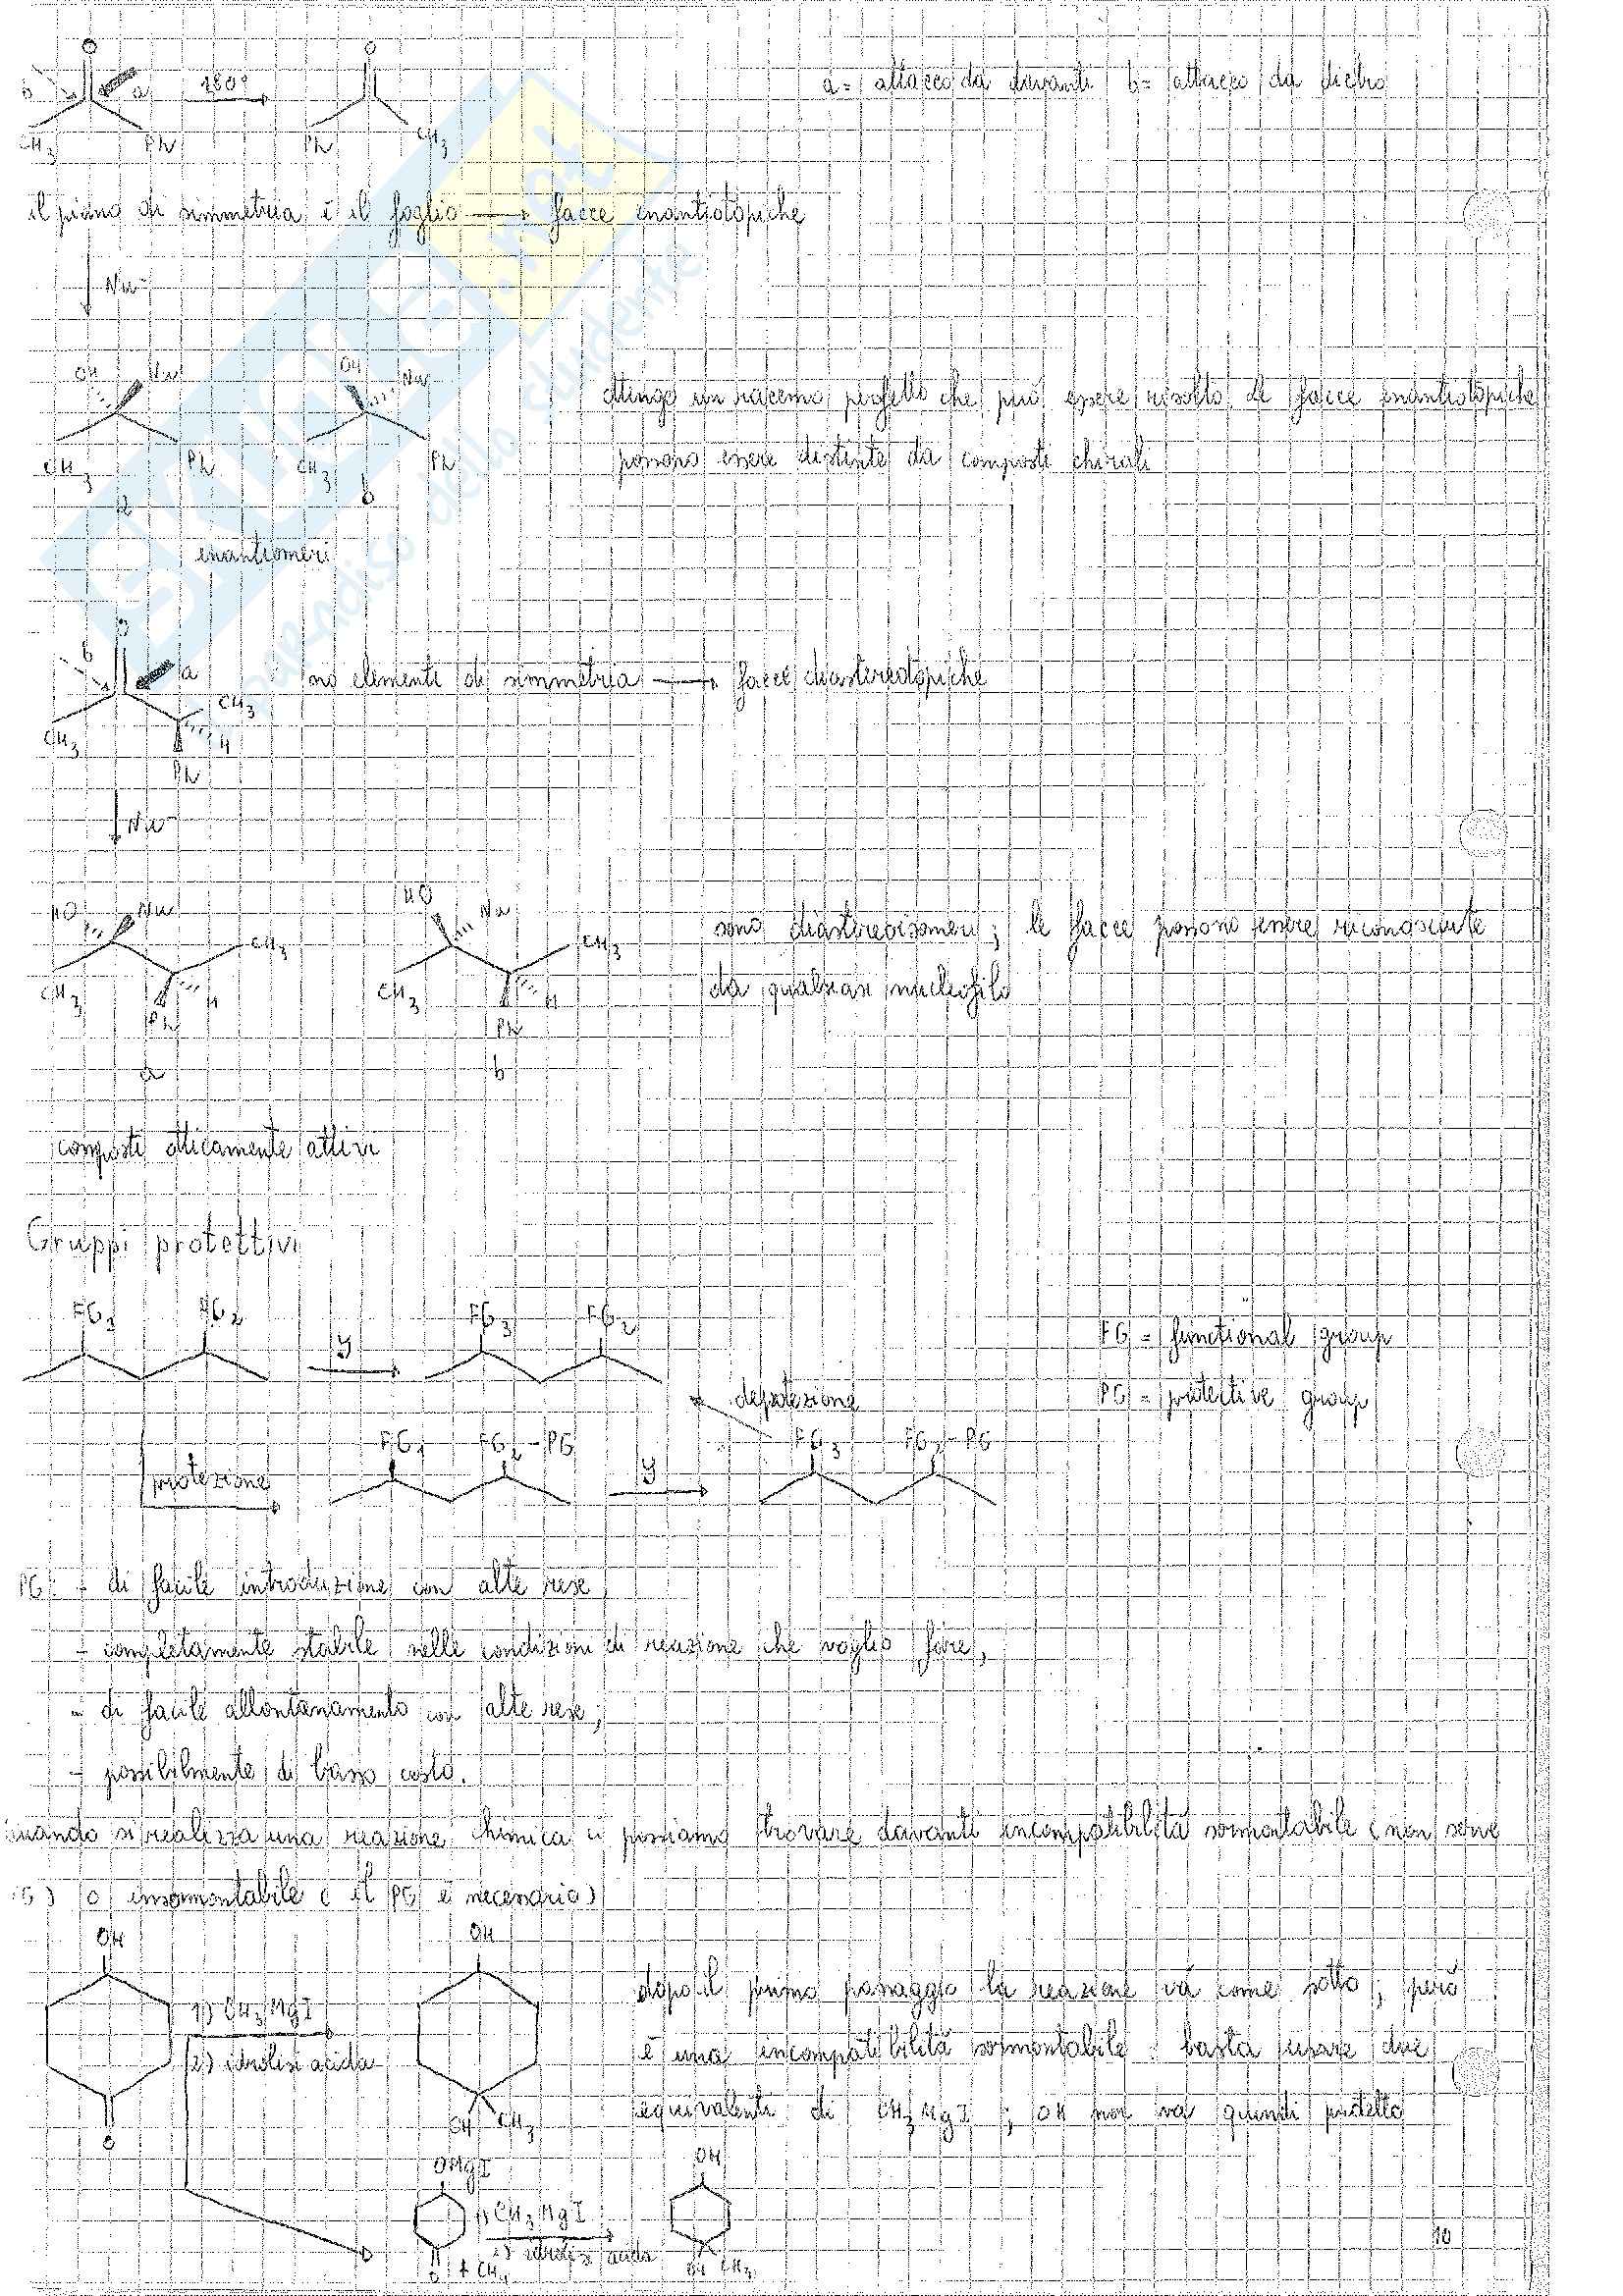 O O
b a 180° a = attacco da davanti b = attacco da dietro
CH3 Ph Ph CH3
il piano di simmetria è il foglio → facce enantiotopiche
Nu-
OH Nu OH Nu
ottengo un racemo perfetto che può essere risolto. Le facce enantiotopiche
CH3 Ph CH3 Ph possono essere distinte da composti chirali
a b
enantiomeri
O
b a no elementi di simmetria → facce diastereotopiche
CH3
CH3 H
Ph
Nu-
HO Nu HO Nu
CH3 CH3 sono diastereoisomeri; le facce possono essere riconosciute
CH3 Ph H CH3 Ph H da qualsiasi nucleofilo
a b
composti otticamente attivi
Gruppi protettivi
FG1 FG2 Y FG3 FG2 FG = functional group
deprotezione PG = protective group
protezione FG1 FG2-PG Y FG3 FG2-PG
PG: - di facile introduzione con alte rese;
- completamente stabile nelle condizioni di reazione che voglio fare;
- di facile allontanamento con alte rese;
- possibilmente di basso costo.
Quando si realizza una reazione chimica ci possiamo trovare davanti incompatibilità sormontabile (non serve
PG) o insormontabile (il PG è necessario)
OH OH
1) CH3MgI dopo il primo passaggio la reazione va come sotto; però
2) idrolisi acida è una incompatibilità sormontabile: basta usare due
O OH CH3 equivalenti di CH3MgI; OH non va quindi protetto
OMgI OH
1) CH3MgI
2) idrolisi acida
O + CH4 OH CH3
10